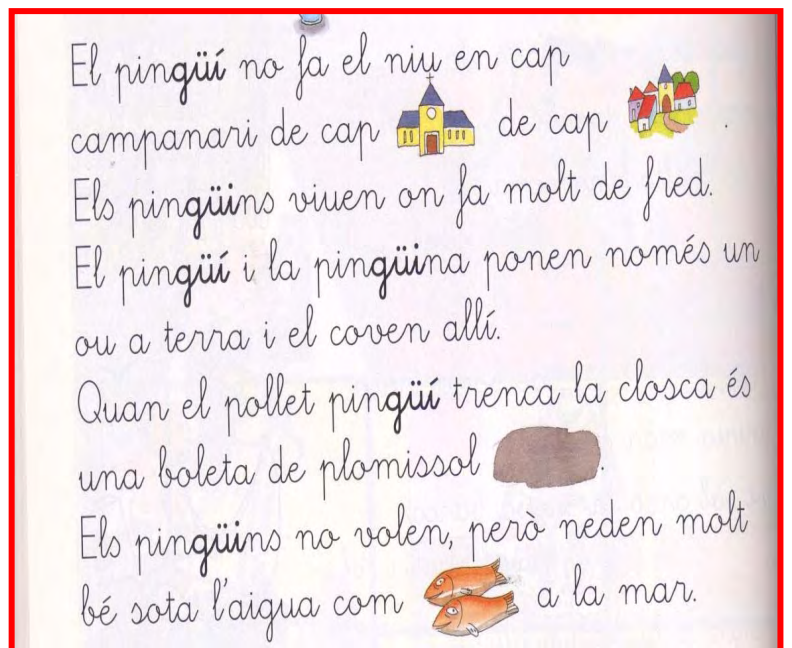 El pingüí no fa el niu en cap
campanari de cap de cap .
Els pingüins viuen on fa molt de fred.
El pingüí i la pingüina ponen només un
ou a terra i el coven allí.
Quan el pollet pingüí trenca la closca és
una boleta de plomissol .
Els pingüins no volen, però neden molt
bé sota l'aigua com a la mar.